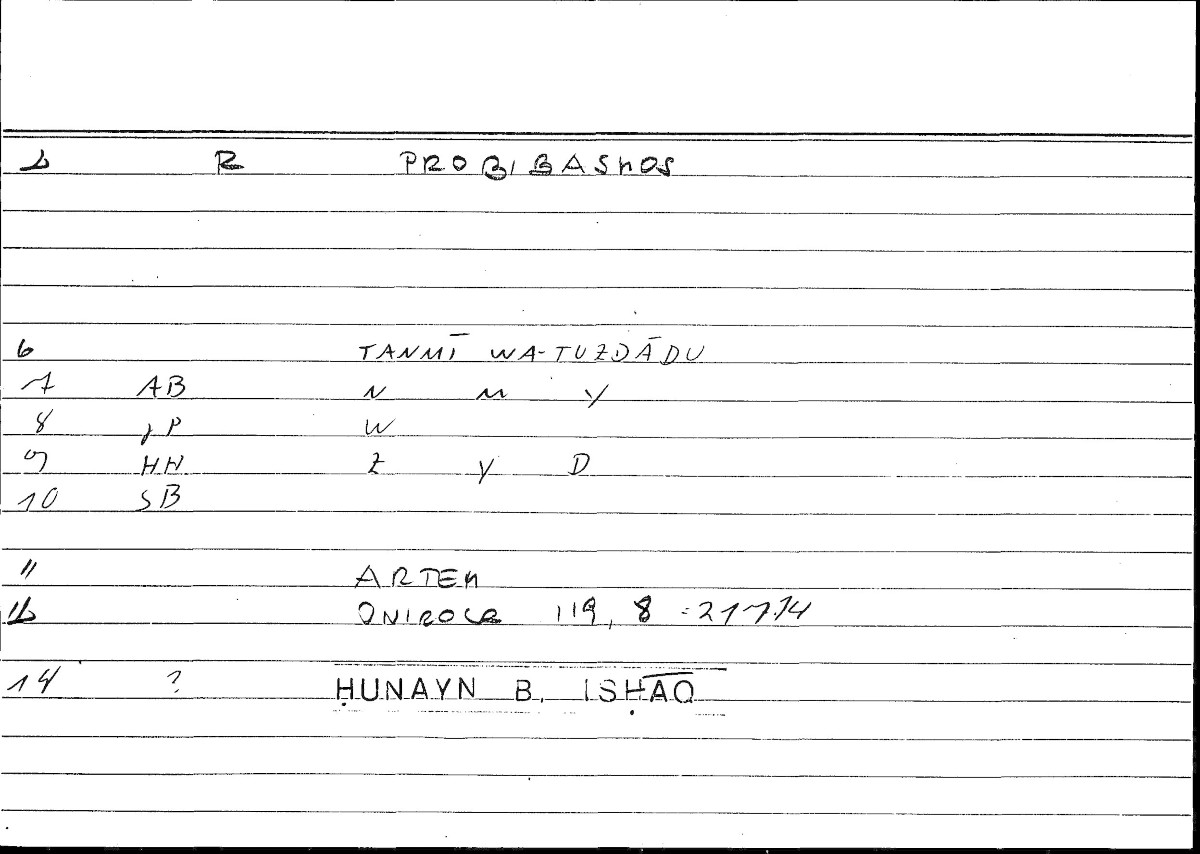 R PROBIBASMOS
6 TANMĪ WA-TUZDĀDU
7 AB N M Y
8 P W
9 HH Z Y D
10 SB
11 ARTEM
ONIROCR 119, 8 =217.14
14 ? ḤUNAYN B. ISḤĀQ